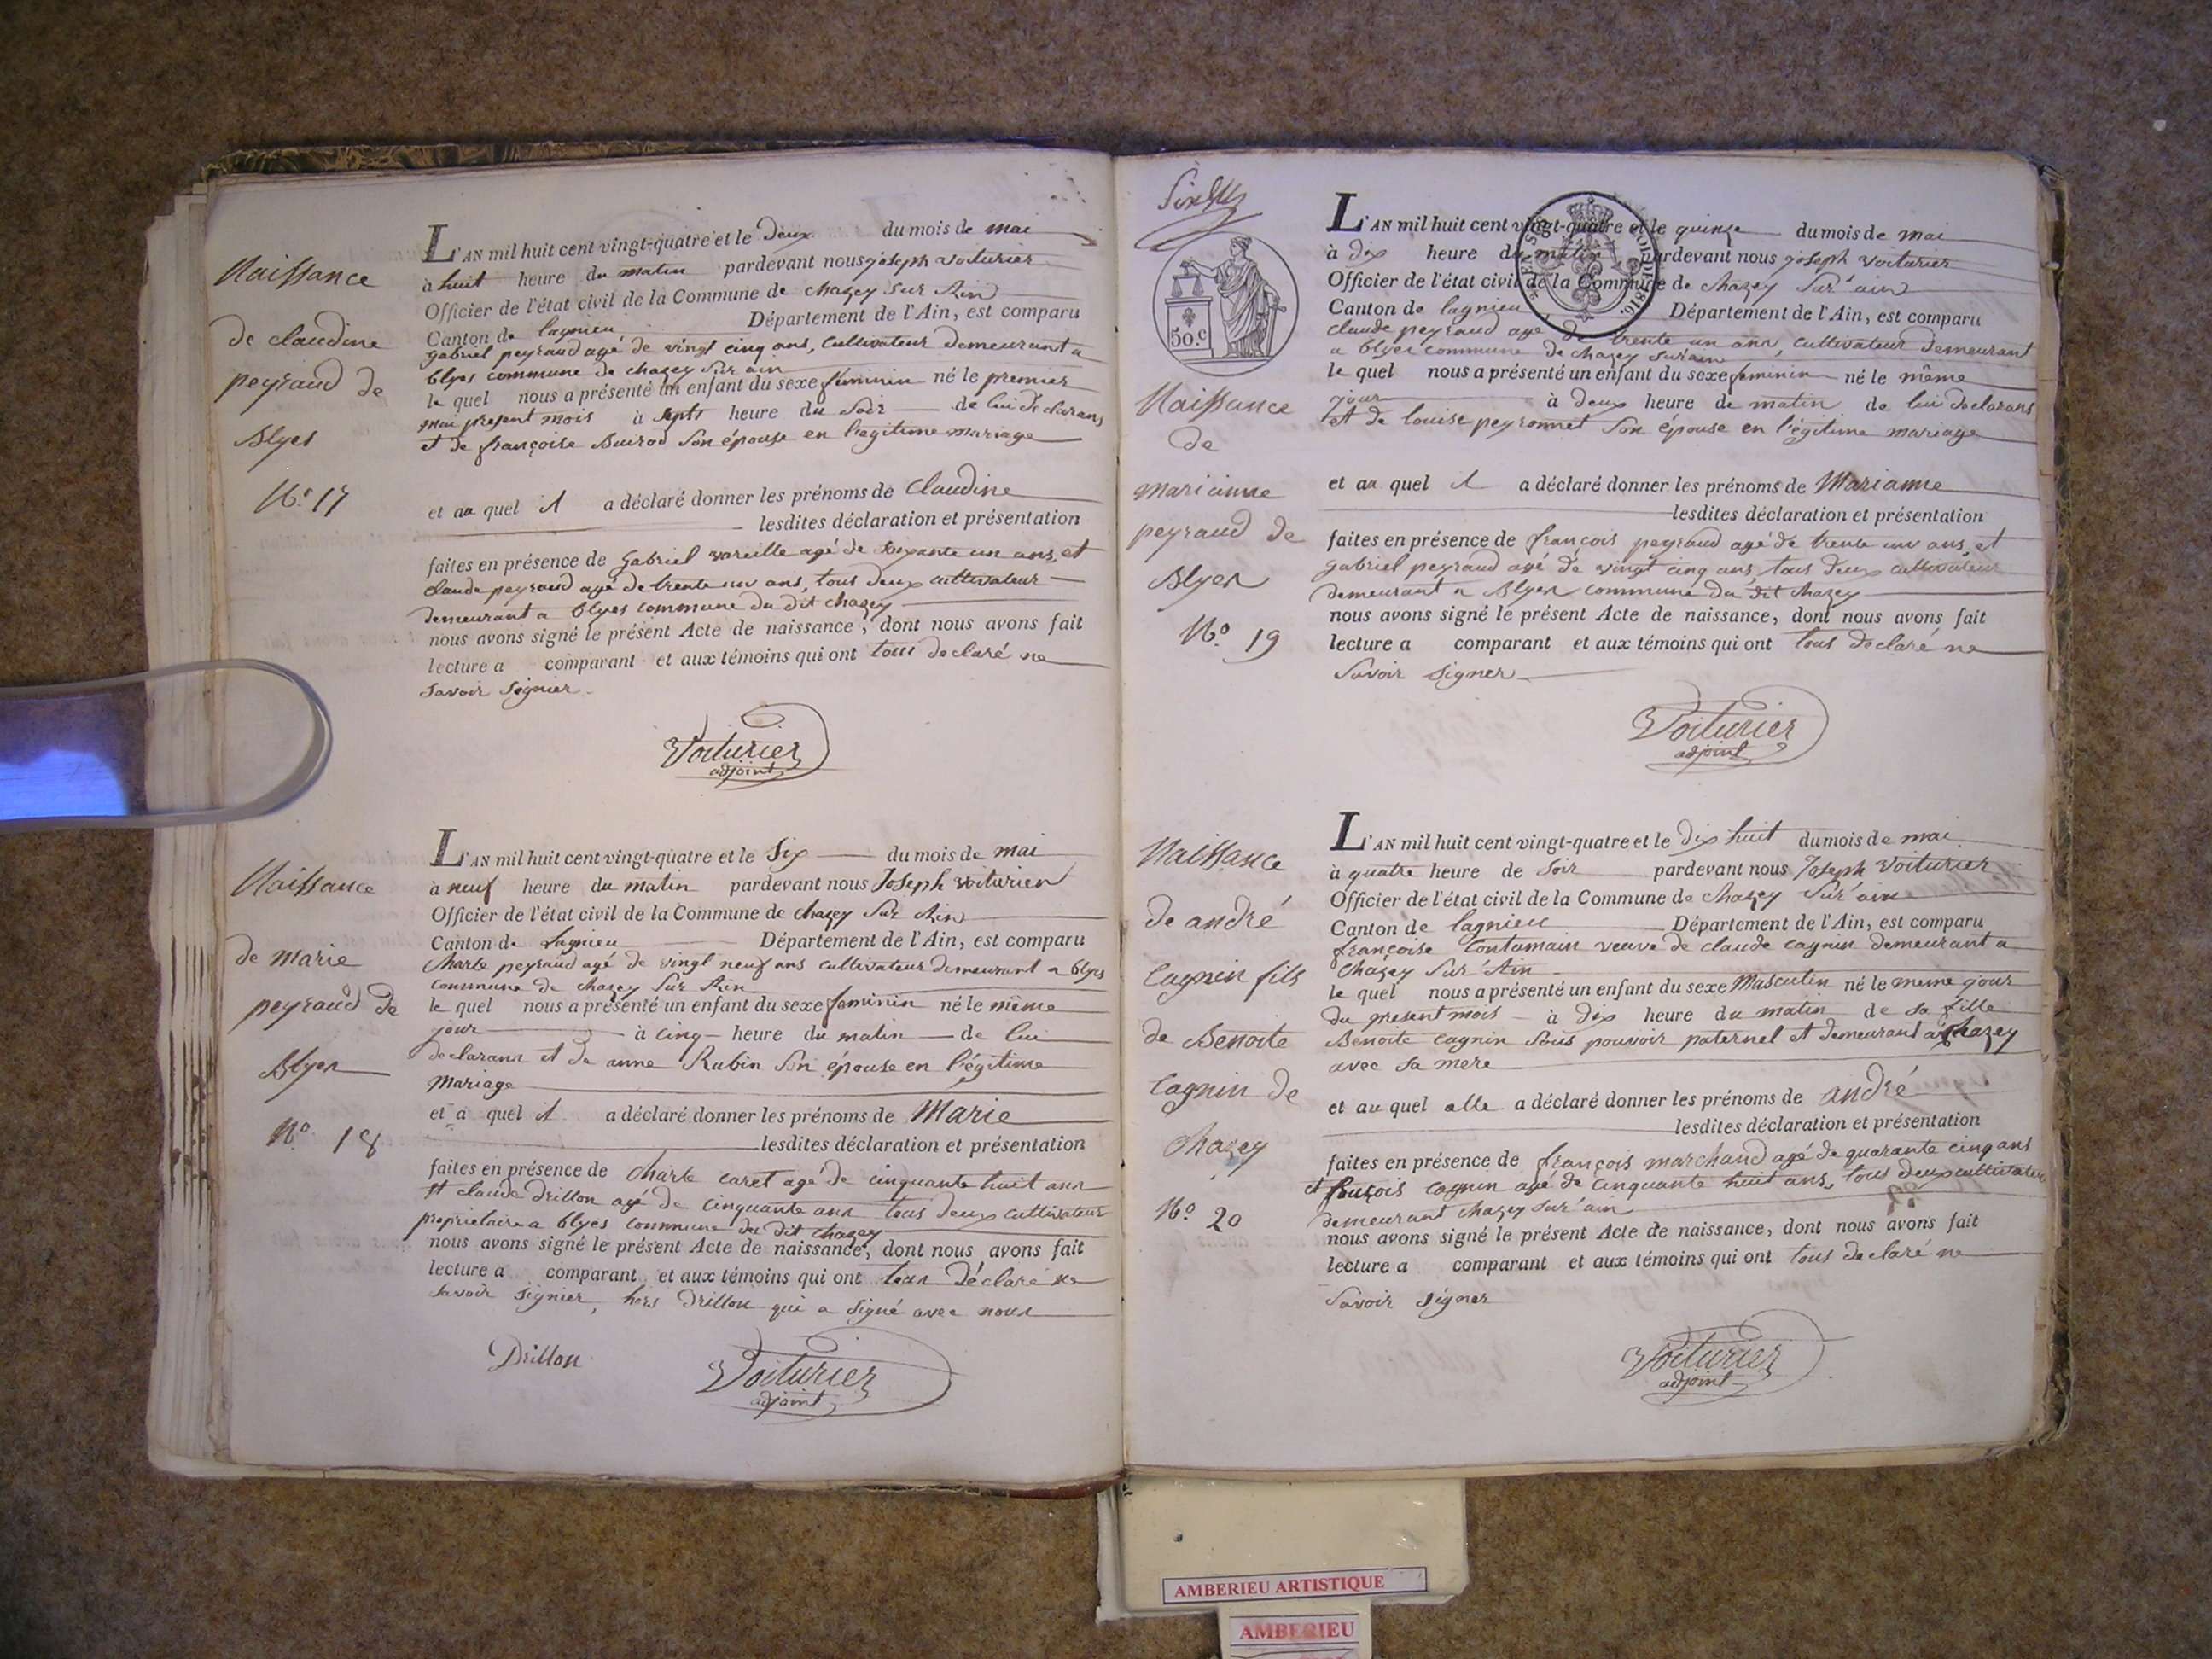 Naissance
de claudine
peyraud de
Blyes
N.º 17
L'AN mil huit cent vingt-quatre et le deux du mois de mai
à huit heure du matin pardevant nous joseph voiturier
Officier de l'état civil de la Commune de chazey sur Ain
Canton de lagnieu Département de l'Ain, est comparu
gabriel peyraud agé de vingt cinq ans, cultivateur demeurant a
blyes commune de chazey sur ain
le quel nous a présenté un enfant du sexe féminin né le premier
mai present mois à sept heure du soir de lui declarans
et de françoise son épouse en légitime mariage
et au quel il a déclaré donner les prénoms de Claudine
lesdites déclaration et présentation
faites en présence de Gabriel vareille agé de soixante un ans, et
claude peyraud agé de trente un ans, tous deux cultivateur
demeurant a blyes commune du dit chazey
nous avons signé le présent Acte de naissance, dont nous avons fait
lecture a comparant et aux témoins qui ont tous declaré ne
savoir signier
Voiturier
adjoint
Naissance
de marie
peyraud de
Blyes
N.º 18
L'AN mil huit cent vingt-quatre et le Six du mois de mai
à neuf heure du matin pardevant nous Joseph voiturier
Officier de l'état civil de la Commune de chazey sur Ain
Canton de Lagnieu Département de l'Ain, est comparu
Charle peyraud agé de vingt neuf ans cultivateur demeurant a blyes
commune de chazey sur Ain
le quel nous a présenté un enfant du sexe feminin né le même
jour à cinq heure du matin de lui
declarans et de anne Rubin son épouse en légitime
mariage
et a quel il a déclaré donner les prénoms de Marie
lesdites déclaration et présentation
faites en présence de Charle caret agé de cinquante huit ans
et claude drillon agé de cinquante ans tous deux cultivateur
proprietaire a blyes commune du dit chazey
nous avons signé le présent Acte de naissance, dont nous avons fait
lecture a comparant et aux témoins qui ont tous déclaré ne
savoir signier, hors drillon qui a signé avec nous
Drillon
Voiturier
adjoint
50.c
1816.
Naissance
de
marianne
peyraud de
Blyes
N.º 19
L'AN mil huit cent vingt-quatre et le quinze du mois de mai
à dix heure du matin pardevant nous joseph voiturier
Officier de l'état civil de la Commune de chazey sur ain
Canton de lagnieu Département de l'Ain, est comparu
claude peyraud agé de trente un ans, cultivateur demeurant
a blyes commune de chazey sur ain
le quel nous a présenté un enfant du sexe feminin né le même
jour à deux heure de matin de lui declarans
et de louise peyronnet son épouse en légitime mariage
et au quel il a déclaré donner les prénoms de Marianne
lesdites déclaration et présentation
faites en présence de françois peyraud agé de trente un ans, et
gabriel peyraud agé de vingt cinq ans, tous deux cultivateur
demeurant a Blyes commune du dit chazey
nous avons signé le présent Acte de naissance, dont nous avons fait
lecture a comparant et aux témoins qui ont tous declaré ne
savoir signer
Voiturier
adjoint
Naissance
de andré
cagnin fils
de Benoite
cagnin de
chazey
N.º 20
L'AN mil huit cent vingt-quatre et le dix huit du mois de mai
à quatre heure de soir pardevant nous Joseph Voiturier
Officier de l'état civil de la Commune de chazey sur ain
Canton de lagnieu Département de l'Ain, est comparu
françoise Contamain veuve de claude cagnin demeurant a
chazey sur Ain
le quel nous a présenté un enfant du sexe Masculin né le meme jour
du present mois à dix heure du matin de sa fille
Benoite cagnin sous pouvoir paternel et demeurant à chazey
avec sa mere
et au quel elle a déclaré donner les prénoms de andré
lesdites déclaration et présentation
faites en présence de françois marchand agé de quarante cinq ans
et cagnin agé de cinquante huit ans, tous deux cultivateur
demeurant chazey sur ain
nous avons signé le présent Acte de naissance, dont nous avons fait
lecture a comparant et aux témoins qui ont tous declaré ne
savoir signer
Voiturier
adjoint
AMBERIEU ARTISTIQUE
AMBERIEU